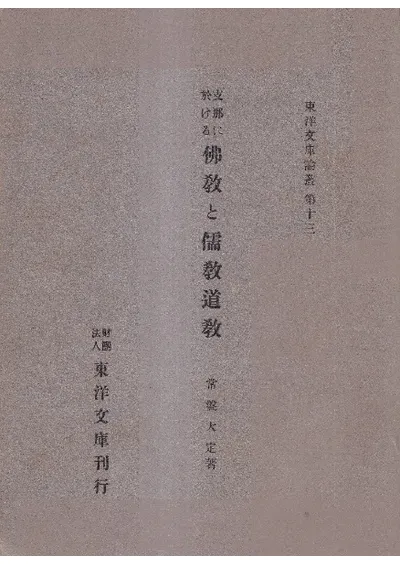 東洋文庫論叢 第十三
支那に於ける 佛敎と儒敎道敎
常盤大定著
財團法人 東洋文庫刊行